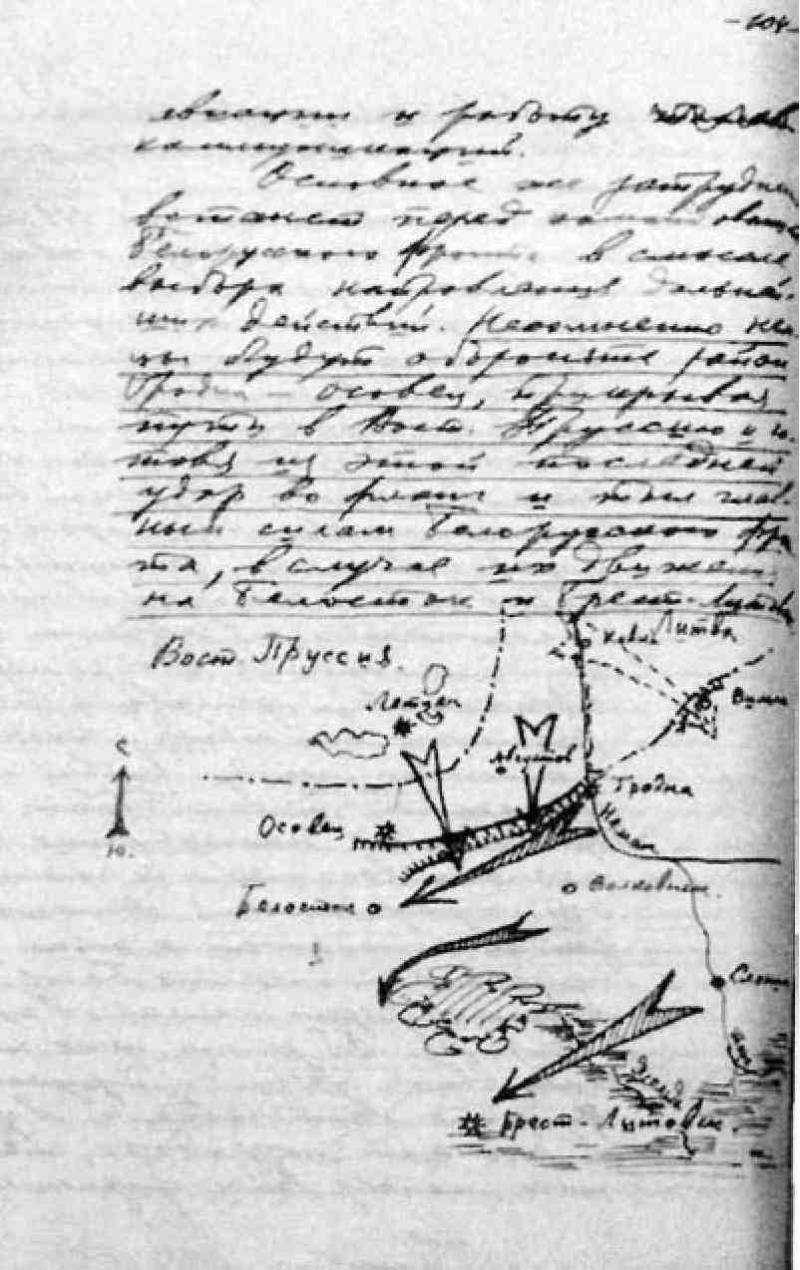 -604-
авиации и работу
коммуникаций.
Основное же затрудне
встанет перед
Белорусского фронта в смысле
выбора направления дальней-
ших действий. Несомненно нем
цы будут оборонять район
Гродна - Осовец, прикрывая
пути в Вост. Пруссию и го-
товя из этой последней
удар во фланг и тыл глав-
ным силам Белорусского фро
та, в случае их движени
на Белосток и Брест-Литов
Ковно Литва
Вост. Пруссия.
Летцен
Вильн
Августов
С
Ю.
Гродна
Осовец
Неман
Белосток
Волковыск
Слоним
Брест-Литовск.